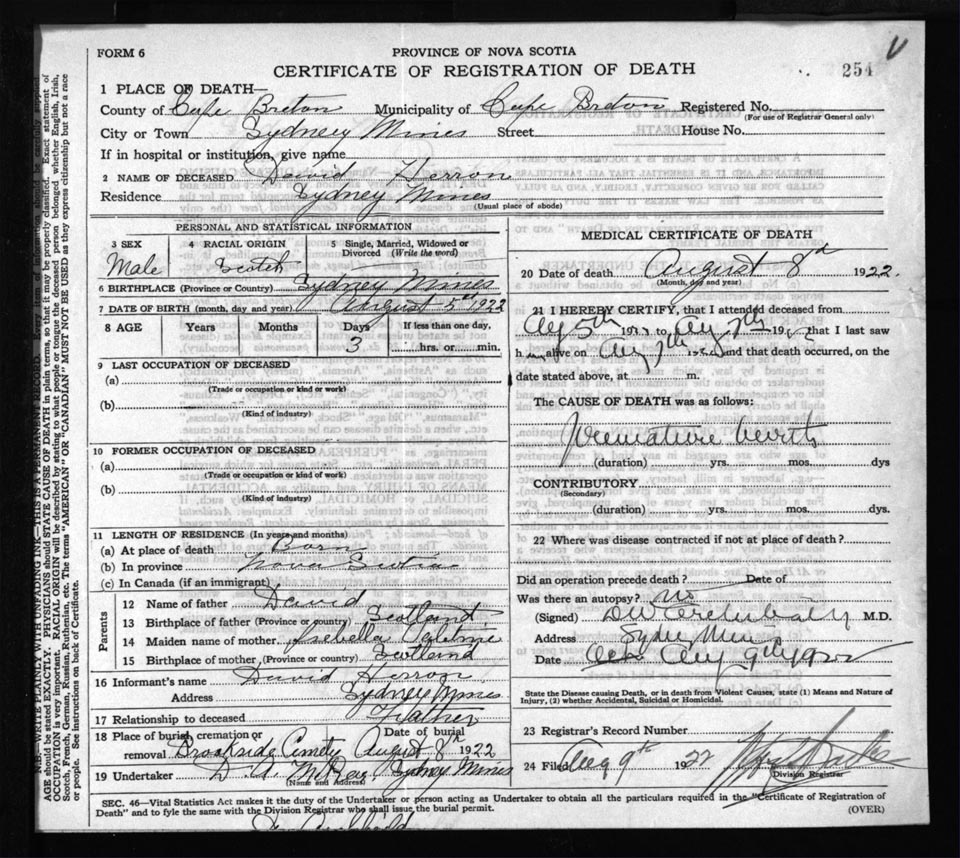 FORM 6
PROVINCE OF NOVA SCOTIA
CERTIFICATE OF REGISTRATION OF DEATH
254
1 PLACE OF DEATH—
County of Cape Breton Municipality of Cape Breton Registered No.
(For use of Registrar General only)
City or Town Sydney Mines Street House No.
If in hospital or institution, give name
2 NAME OF DECEASED David Herron
Residence Sydney Mines
(Usual place of abode)
PERSONAL AND STATISTICAL INFORMATION
3 SEX 4 RACIAL ORIGIN 5 Single, Married, Widowed or Divorced (Write the word)
Male Scotch
6 BIRTHPLACE (Province or Country) Sydney Mines
7 DATE OF BIRTH (month, day and year) August 5th 1922
8 AGE Years Months Days If less than one day,
3 hrs. or min.
9 LAST OCCUPATION OF DECEASED
(a)
(Trade or occupation or kind or work)
(b)
(Kind of industry)
10 FORMER OCCUPATION OF DECEASED
(a)
(Trade or occupation or kind or work)
(b)
(Kind of industry)
11 LENGTH OF RESIDENCE (In years and months)
(a) At place of death Born
(b) In province Nova Scotia
(c) In Canada (if an immigrant)
Parents
12 Name of father David
13 Birthplace of father (Province or country) Scotland
14 Maiden name of mother Isabella
15 Birthplace of mother (Province or country) Scotland
16 Informant's name David Herron
Address Sydney Mines
17 Relationship to deceased Father
18 Place of burial, cremation or removal Date of burial
Brookside Cemetry August 8th 1922
19 Undertaker Sydney Mines
(Name and Address)
MEDICAL CERTIFICATE OF DEATH
20 Date of death August 8th 1922.
(Month, day and year)
21 I HEREBY CERTIFY, that I attended deceased from
Aug 5th to Aug 7th that I last saw
h alive on Aug 7th and that death occurred, on the
date stated above, at m.
The CAUSE OF DEATH was as follows:
Premature birth
(duration) yrs. mos. dys
CONTRIBUTORY
(Secondary)
(duration) yrs. mos. dys.
22 Where was disease contracted if not at place of death?
Did an operation precede death? Date of
Was there an autopsy? No
(Signed) M.D.
Address Sydney Mines
Date Aug 9th 1922
State the Disease causing Death, or in death from Violent Causes, state (1) Means and Nature of
Injury, (2) whether Accidental, Suicidal or Homicidal.
23 Registrar's Record Number
24 Filed Aug 9th 1922
Division Registrar
SEC. 46—Vital Statistics Act makes it the duty of the Undertaker or person acting as Undertaker to obtain all the particulars required in the "Certificate of Registration of
Death" and to fyle the same with the Division Registrar who shall issue the burial permit.
(OVER)
N.B.—WRITE PLAINLY WITH UNFADING INK—THIS IS A PERMANENT RECORD.
AGE should be stated EXACTLY. PHYSICIANS should STATE CAUSE OF DEATH in plain terms, so that it may be properly classified. Exact statement of
OCCUPATION is very important. RACIAL ORIGIN will be described by stating to what people or tongue the deceased person belonged whether English, Irish,
Scotch, French, German, Russian, Ruthenian, etc. The terms "AMERICAN" OR "CANADIAN" MUST NOT BE USED as they express citizenship but not a race
or people. See instructions on back of Certificate.